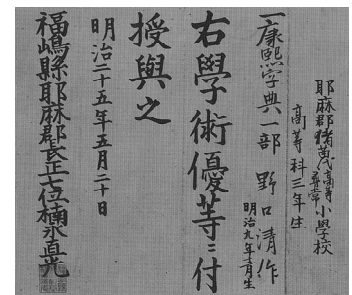 耶麻郡猪苗代高等尋常小學校
高等科三年生
野口清作
明治九年十一月生
一康熙字典一部
右學術優等ニ付
授與之
明治二十五年五月二十日
福嶋縣耶麻郡長正七位楠泉直光